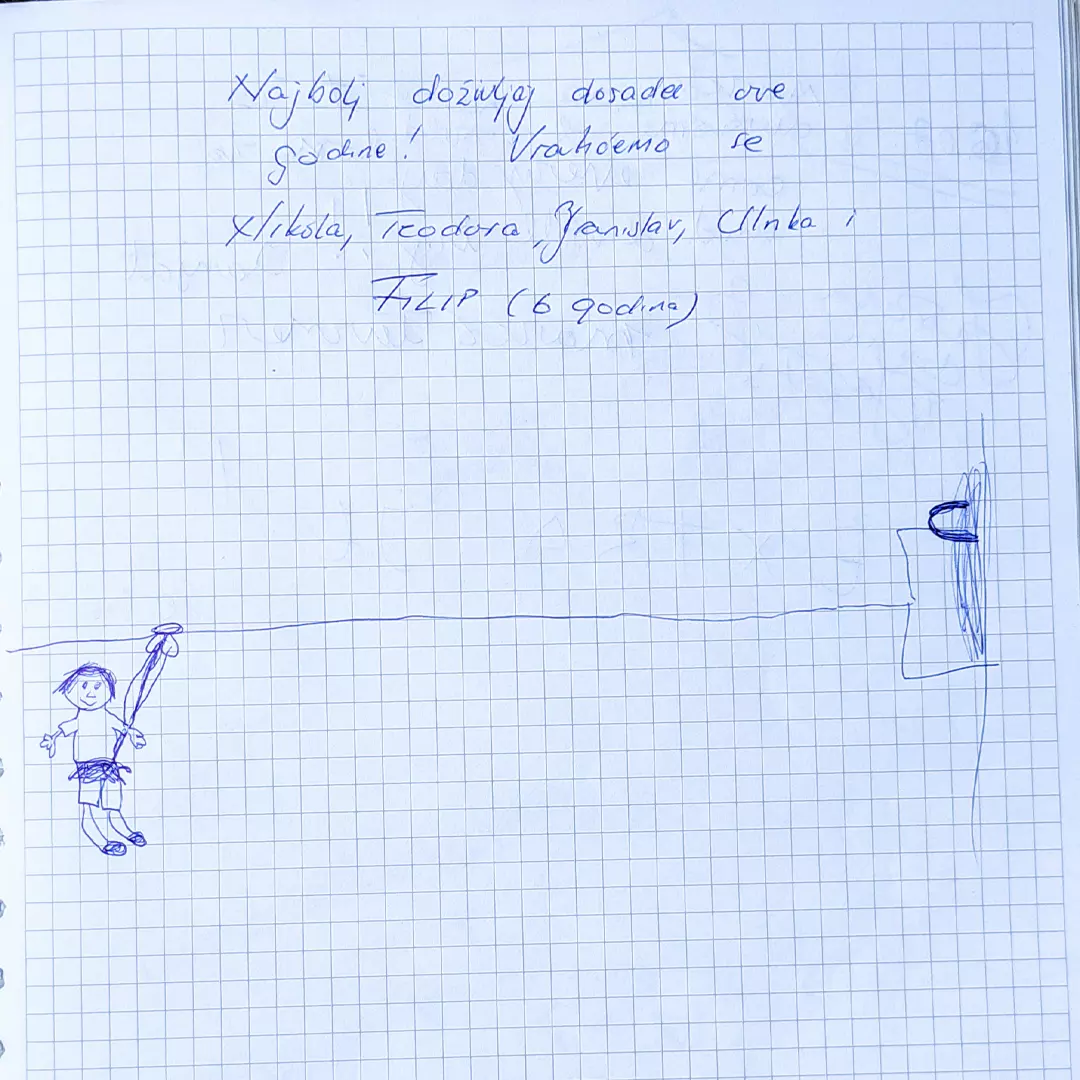 Najbolj doživljaj dosada ove
godine! Vratićemo se
Nikola, Teodora, Branislav, i
FILIP (6 godina)